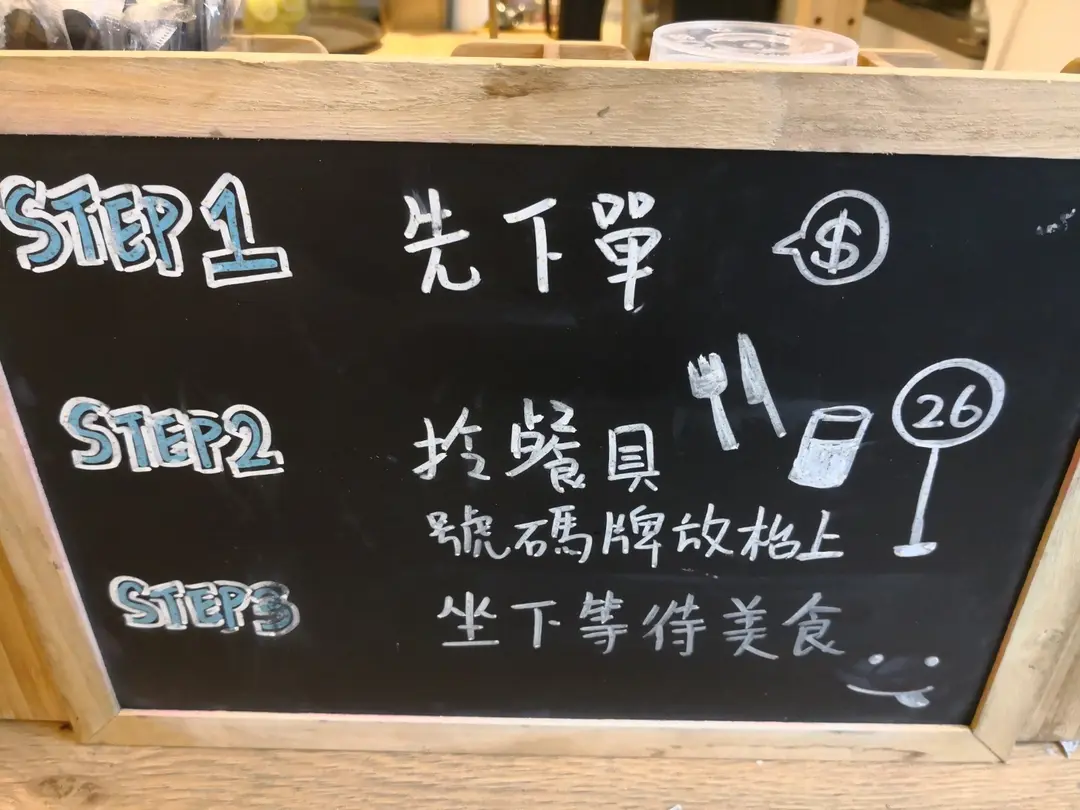 STEP 1 先下單 $
STEP2 拎餐具
26
號碼牌放枱上
STEP3 坐下等待美食